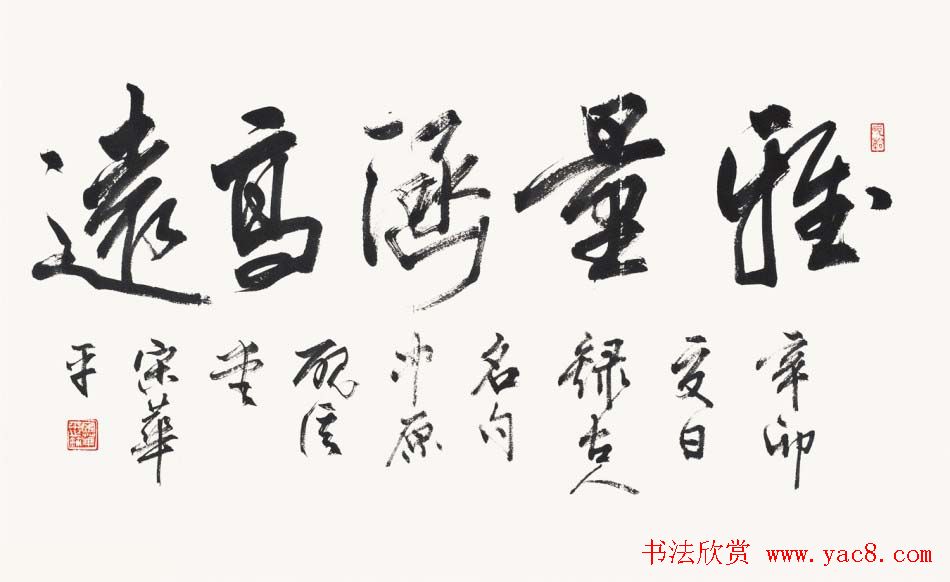 雅量涵高遠
辛卯
夏日
録古人
名句
中原
硯儂
堂
宋華
平
书法欣赏 www.yac8.com